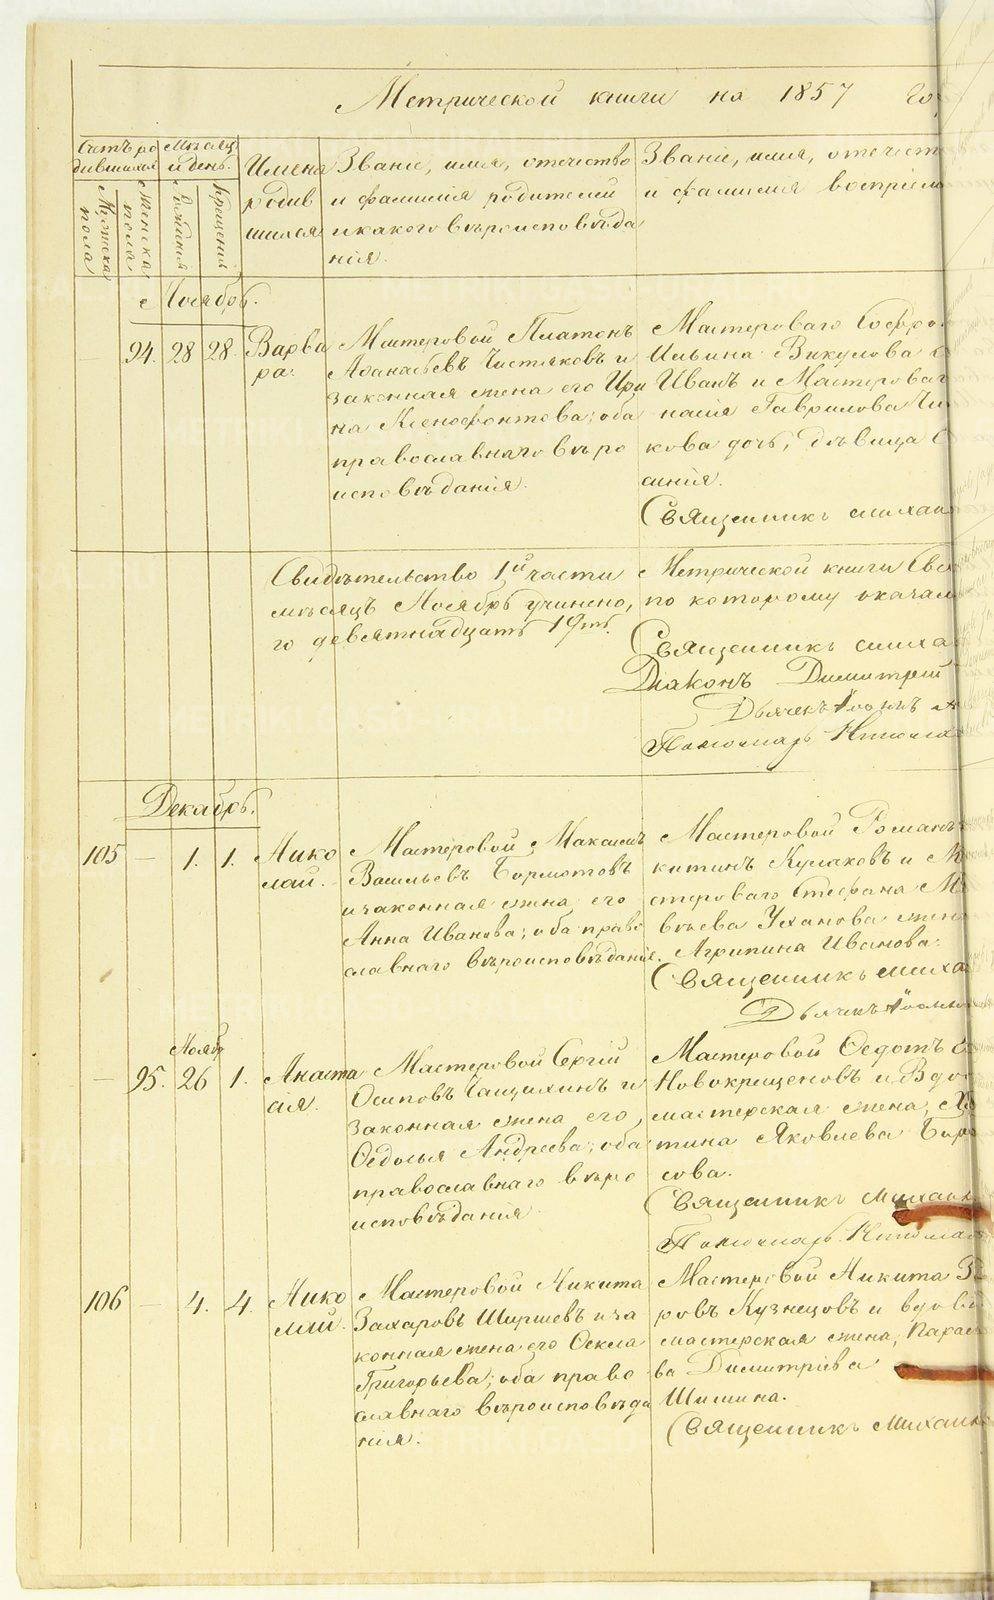 Метрической книги на 1857 го
Счетъ ро
дившихся
Мѣсяцъ
и день.
Мужеска
пола
Женска
пола
Рожденiя
Крещенiя
Имена
родив
шихся
Званiе, имя, отечество
и фамилiя родителей
и какого вѣроисповѣда
нiя.
Званiе, имя, отечест
и фамилiя воспрiем
Ноябрь.
— 94. 28 28.
Варва
ра.
Мастеровой Платонъ
Афанасьевъ Чистяковъ и
законная жена его Ири
на Ксенофонтова; оба
православнаго вѣро
исповѣданiя.
Мастероваго Софро
Ильина Викулова
Иванъ и Мастероваг
Гаврилова Чи
кова дочь, дѣвица
Священникъ Михаи
Свидѣтельство 1й части Метрической книги
мѣсяцъ Ноябрь учинено, по которому оказал
го девятнадцать 19ть.
Священникъ Миха
Дiаконъ Димитрiй
Дьячекъ Iоаннъ
Пономарь Николай
Декабрь.
105 — 1. 1.
Нико
лай.
Мастеровой Максимъ
Васильевъ Бормотовъ
и законная жена его
Анна Иванова; оба право
славнаго вѣроисповѣданiя.
Мастеровой Романъ
китинъ Кулаковъ и М
стероваго Стефана М
вѣева Уханова жен
Агрипина Иванова.
Священникъ Миха
Дьячекъ Iоаннъ
Ноябр
— 95. 26 1.
Анаста
сiя.
Мастеровой Сергiй
Осиповъ и
законная жена его
Ѳедосья Андреева; оба
православнаго вѣро
исповѣданiя.
Мастеровой Ѳедотъ
Новокрещеновъ и Вдов
мастерская жена,
тина Яковлева
сова.
Священникъ Михаил
Пономарь Николай
106 — 4. 4.
Нико
лай.
Мастеровой Никита
Захаровъ Ширшевъ и за
конная жена его Ѳекла
Григорьева; оба право
славнаго вѣроисповѣда
нiя.
Мастеровой Никита
ровъ Кузнецовъ и вдова
мастерская жена, Параск
ва Димитрiева
Шишина.
Священникъ Михаил